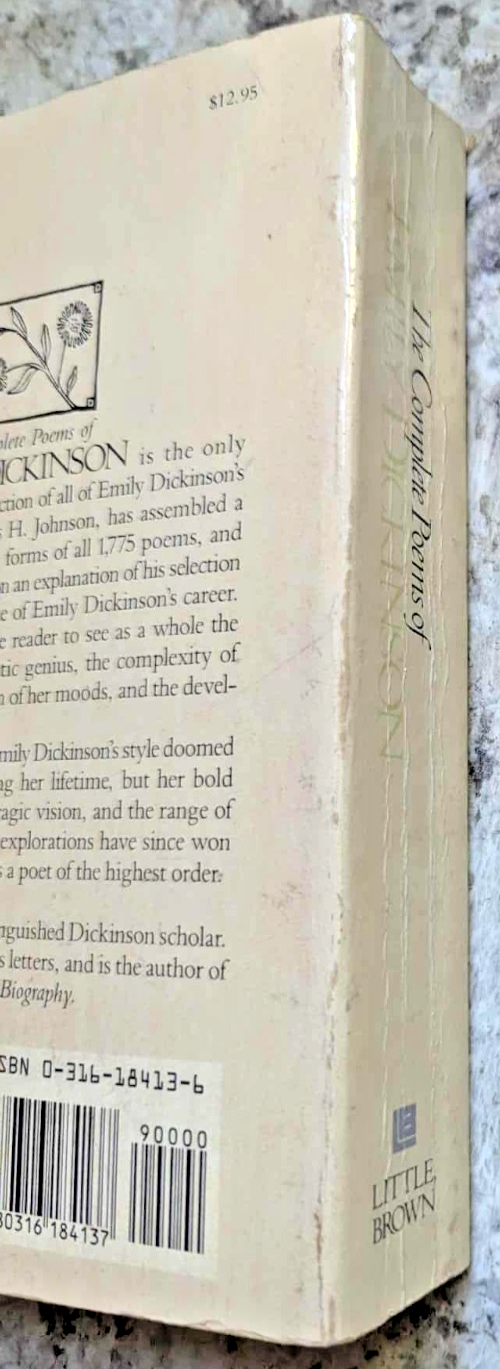 $12.95
plete Poems of
DICKINSON is the only
ction of all of Emily Dickinson's
s H. Johnson, has assembled a
forms of all 1,775 poems, and
n an explanation of his selection
e of Emily Dickinson's career.
e reader to see as a whole the
tic genius, the complexity of
n of her moods, and the devel-
mily Dickinson's style doomed
ng her lifetime, but her bold
ragic vision, and the range of
explorations have since won
s a poet of the highest order.
nguished Dickinson scholar.
s letters, and is the author of
Biography.
SBN 0-316-18413-6
90000
80316 184137
The Complete Poems of
EMILY DICKINSON
LB
LITTLE,
BROWN